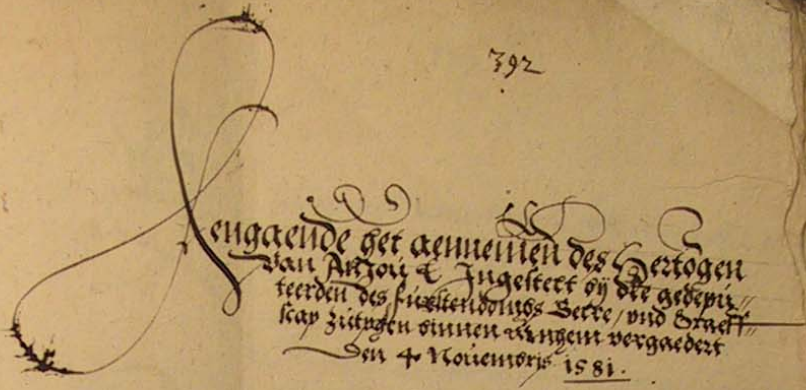 392
Aengaende het aennemen des Hertogen
van Anjou &c Ingestelt by die gedepu„
teerden des furstendombs Gelre / und Graeff„
scap Zutphen binnen Arnhem vergaedert
Den 4 Novembris 1581.